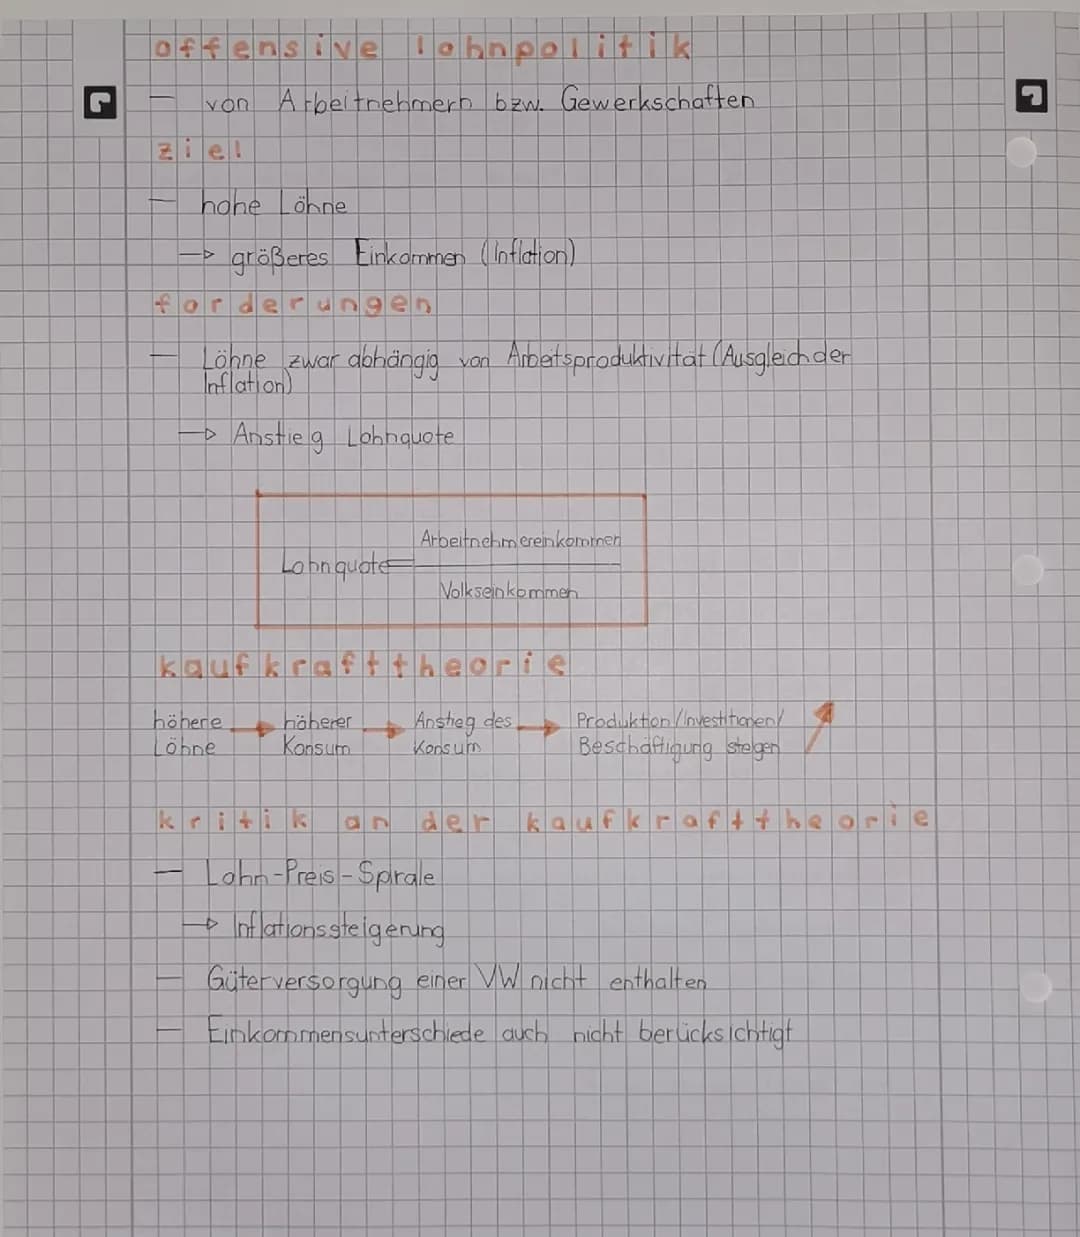 offensive lohnpolitik
— von Arbeitnehmern bzw. Gewerkschaften
ziel
— hohe Löhne
→ größeres Einkommen (Inflation)
forderungen
— Löhne zwar abhängig von Arbeitsproduktivität (Ausgleich der
Inflation)
→ Anstieg Lohnquote
Arbeitnehmereinkommen
Lohnquote =
Volkseinkommen
kaufkrafttheorie
höhere → höherer → Anstieg des → Produktion/Investitionen/
Löhne Konsum Konsum Beschäftigung steigen
kritik an der kaufkrafttheorie
— Lohn-Preis-Spirale
→ Inflationssteigerung
— Güterversorgung einer VW nicht enthalten
— Einkommensunterschiede auch nicht berücksichtigt